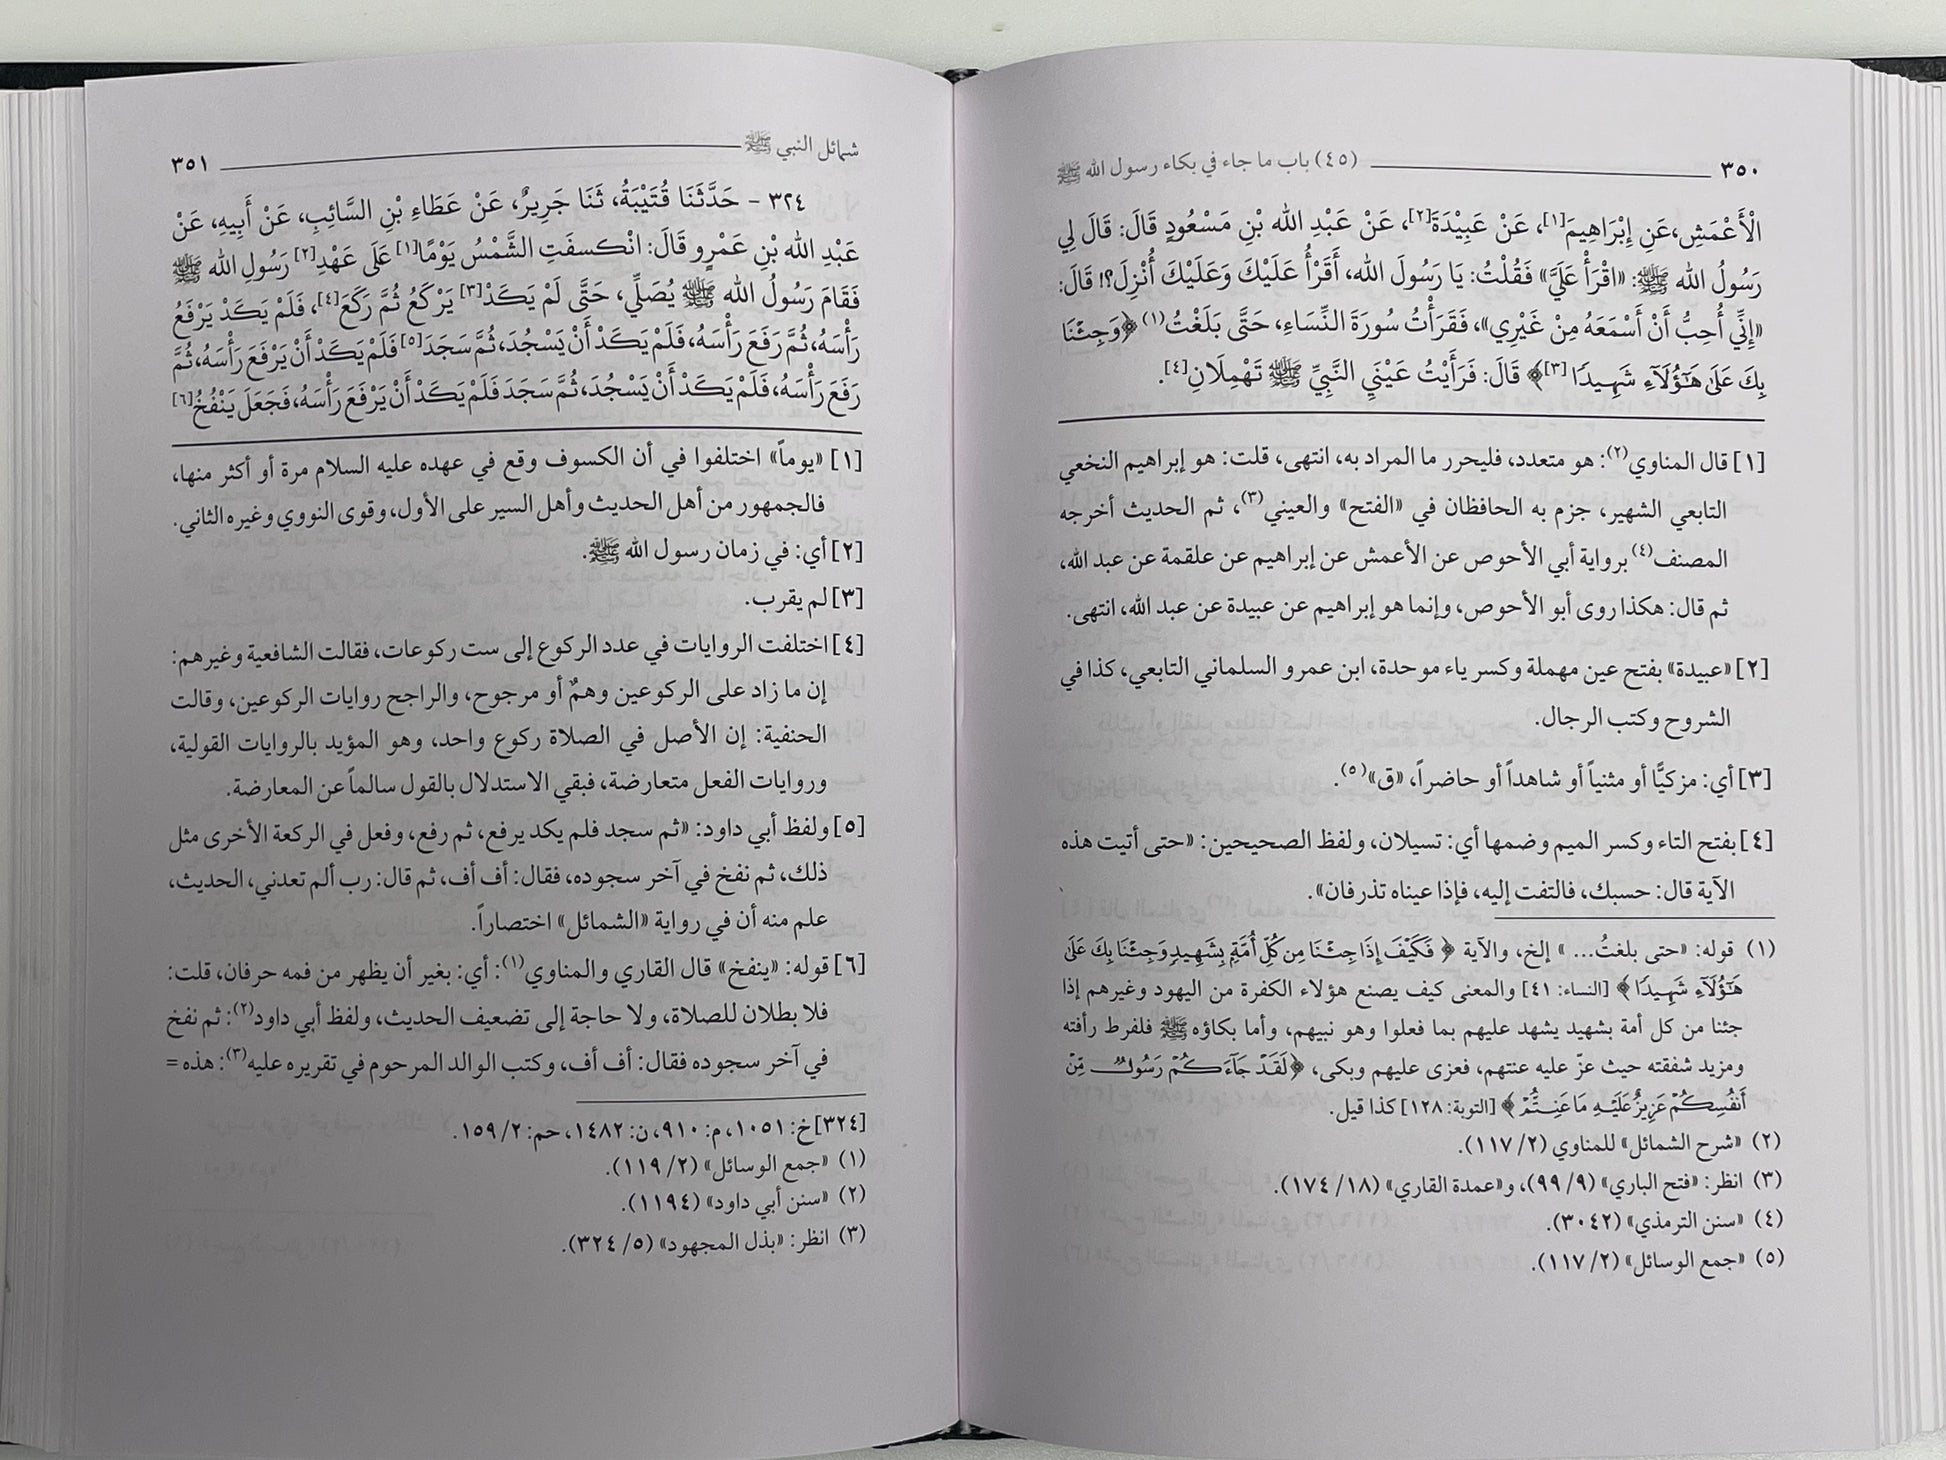 ٣٥٠ (٤٥) باب ما جاء في بكاء رسول الله ﷺ
الْأَعْمَشِ،عَنِ إِبْرَاهِيمَ[١]، عَنْ عَبِيْدَةَ[٢]، عَنْ عَبْدِ الله بْنِ مَسْعُودٍ قَالَ: قَالَ لِي
رَسُولُ الله ﷺ: «اقْرَأْ عَلَيَّ» فَقُلْتُ: يَا رَسُولَ الله، أَقَرْأُ عَلَيْكَ وَعَلَيْكَ أُنْزِلَ؟! قَالَ:
«إِنِّي أُحِبُّ أَنْ أَسْمَعَهُ مِنْ غَيْرِي»، فَقَرَأْتُ سُورَةَ النِّسَاءِ، حَتَّى بَلَغْتُ(١) ﴿وَجِئْنَا
بِكَ عَلَىٰ هَٰٓؤُلَآءِ شَهِيدًا [٣]﴾ قَالَ: فَرَأَيْتُ عَيْنَيِ النَّبِيِّ ﷺ تَهْمِلَانِ[٤].
[١] قال المناوي(٢): هو متعدد، فليحرر ما المراد به، انتهى، قلت: هو إبراهيم النخعي
التابعي الشهير، جزم به الحافظان في «الفتح» والعيني(٣)، ثم الحديث أخرجه
المصنف(٤) برواية أبي الأحوص عن الأعمش عن إبراهيم عن علقمة عن عبد الله،
ثم قال: هكذا روى أبو الأحوص، وإنما هو إبراهيم عن عبيدة عن عبد الله، انتهى.
[٢] «عبيدة» بفتح عين مهملة وكسر ياء موحدة، ابن عمرو السلماني التابعي، كذا في
الشروح وكتب الرجال.
[٣] أي: مزكيًّا أو مثنياً أو شاهداً أو حاضراً، «ق»(٥).
[٤] بفتح التاء وكسر الميم وضمها أي: تسيلان، ولفظ الصحيحين: «حتى أتيت هذه
الآية قال: حسبك، فالتفت إليه، فإذا عيناه تذرفان».
(١) قوله: «حتى بلغتُ... » إلخ، والآية ﴿ فَكَيْفَ إِذَا جِئْنَا مِن كُلِّ أُمَّةٍۭ بِشَهِيدٍ وَجِئْنَا بِكَ عَلَىٰ
هَٰٓؤُلَآءِ شَهِيدًا ﴾ [النساء: ٤١] والمعنى كيف يصنع هؤلاء الكفرة من اليهود وغيرهم إذا
جئنا من كل أمة بشهيد يشهد عليهم بما فعلوا وهو نبيهم، وأما بكاؤه ﷺ فلفرط رأفته
ومزيد شفقته حيث عزّ عليه عنتهم، فعزى عليهم وبكى، ﴿لَقَدْ جَآءَكُمْ رَسُولٌ مِّنْ
أَنفُسِكُمْ عَزِيزٌ عَلَيْهِ مَا عَنِتُّمْ﴾ [التوبة: ١٢٨] كذا قيل.
(٢) «شرح الشمائل» للمناوي (٢/ ١١٧).
(٣) انظر: «فتح الباري» (٩/ ٩٩)، و«عمدة القاري» (١٨/ ١٧٤).
(٤) «سنن الترمذي» (٣٠٤٢).
(٥) «جمع الوسائل» (٢/ ١١٧).
شمائل النبي ﷺ ٣٥١
٣٢٤ - حَدَّثَنَا قُتَيْبَةُ، ثَنَا جَرِيرٌ، عَنْ عَطَاءِ بْنِ السَّائِبِ، عَنْ أَبِيهِ، عَنْ
عَبْدِ الله بْنِ عَمْرٍو قَالَ: انْكسفَتِ الشَّمْسُ يَوْمًا[١] عَلَى عَهْدِ[٢] رَسُولِ الله ﷺ
فَقَامَ رَسُولُ الله ﷺ يُصَلِّي، حَتَّى لَمْ يَكَدْ[٣] يَرْكَعُ ثُمَّ رَكَعَ[٤]، فَلَمْ يَكَدْ يَرْفَعُ
رَأْسَهُ، ثُمَّ رَفَعَ رَأْسَهُ، فَلَمْ يَكَدْ أَنْ يَسْجُدَ، ثُمَّ سَجَدَ[٥] فَلَمْ يَكَدْ أَنْ يَرْفَعَ رَأْسَهُ، ثُمَّ
رَفَعَ رَأْسَهُ، فَلَمْ يَكَدْ أَنْ يَسْجُدَ، ثُمَّ سَجَدَ فَلَمْ يَكَدْ أَنْ يَرْفَعَ رَأْسَهُ، فَجَعَلَ يَنْفُخُ[٦]
[١] «يوماً» اختلفوا في أن الكسوف وقع في عهده عليه السلام مرة أو أكثر منها،
فالجمهور من أهل الحديث وأهل السير على الأول، وقوى النووي وغيره الثاني.
[٢] أي: في زمان رسول الله ﷺ.
[٣] لم يقرب.
[٤] اختلفت الروايات في عدد الركوع إلى ست ركوعات، فقالت الشافعية وغيرهم:
إن ما زاد على الركوعين وهمٌ أو مرجوح، والراجح روايات الركوعين، وقالت
الحنفية: إن الأصل في الصلاة ركوع واحد، وهو المؤيد بالروايات القولية،
وروايات الفعل متعارضة، فبقي الاستدلال بالقول سالماً عن المعارضة.
[٥] ولفظ أبي داود: «ثم سجد فلم يكد يرفع، ثم رفع، وفعل في الركعة الأخرى مثل
ذلك، ثم نفخ في آخر سجوده، فقال: أف أف، ثم قال: رب ألم تعدني، الحديث،
علم منه أن في رواية «الشمائل» اختصاراً.
[٦] قوله: «ينفخ» قال القاري والمناوي(١): أي: بغير أن يظهر من فمه حرفان، قلت:
فلا بطلان للصلاة، ولا حاجة إلى تضعيف الحديث، ولفظ أبي داود(٢): ثم نفخ
في آخر سجوده فقال: أف أف، وكتب الوالد المرحوم في تقريره عليه(٣): هذه =
[٣٢٤] خ: ١٠٥١، م: ٩١٠، ن: ١٤٨٢، حم: ٢/ ١٥٩.
(١) «جمع الوسائل» (٢/ ١١٩).
(٢) «سنن أبي داود» (١١٩٤).
(٣) انظر: «بذل المجهود» (٥/ ٣٢٤).